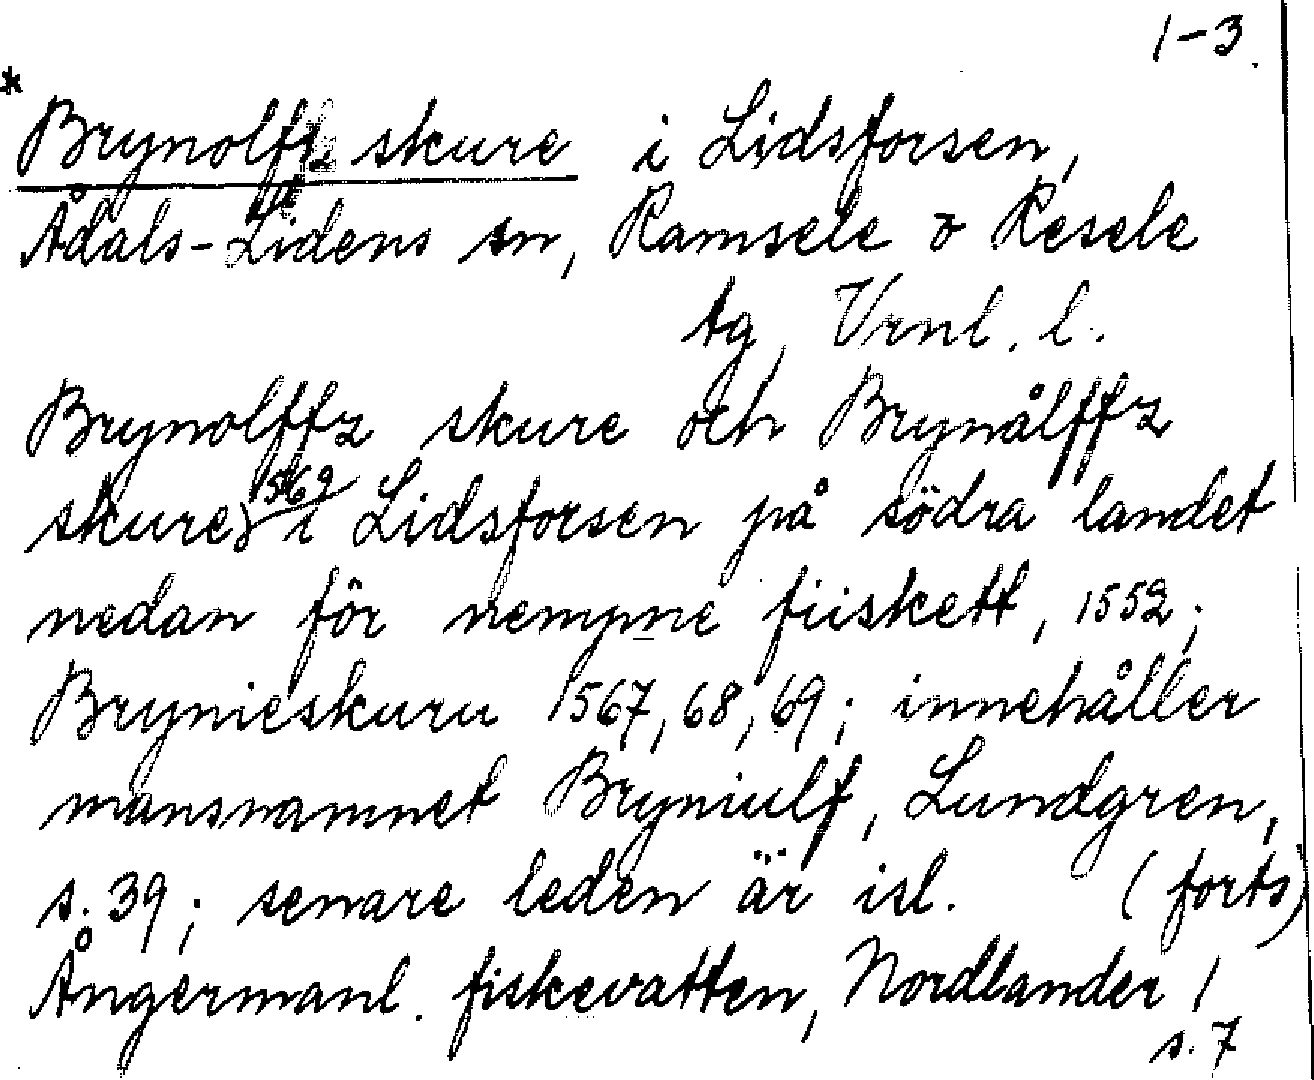 1-3.
* Brynolffz skure i Lidsforsen,
Ådals-Lidens sn, Ramsele o Resele
tg, Vrnl. l.
Brynolffz skure och Brynålffz
skure 1569 i Lidsforsen på södra landet
nedan för nempne fiiskett, 1552;
Brynieskuru 1567, 68, 69; innehåller
mansnamnet Bryniulf, Lundgren,
s. 39; senare leden är isl. (forts)
Ångermanl. fiskevatten, Nordlander 1
s. 7